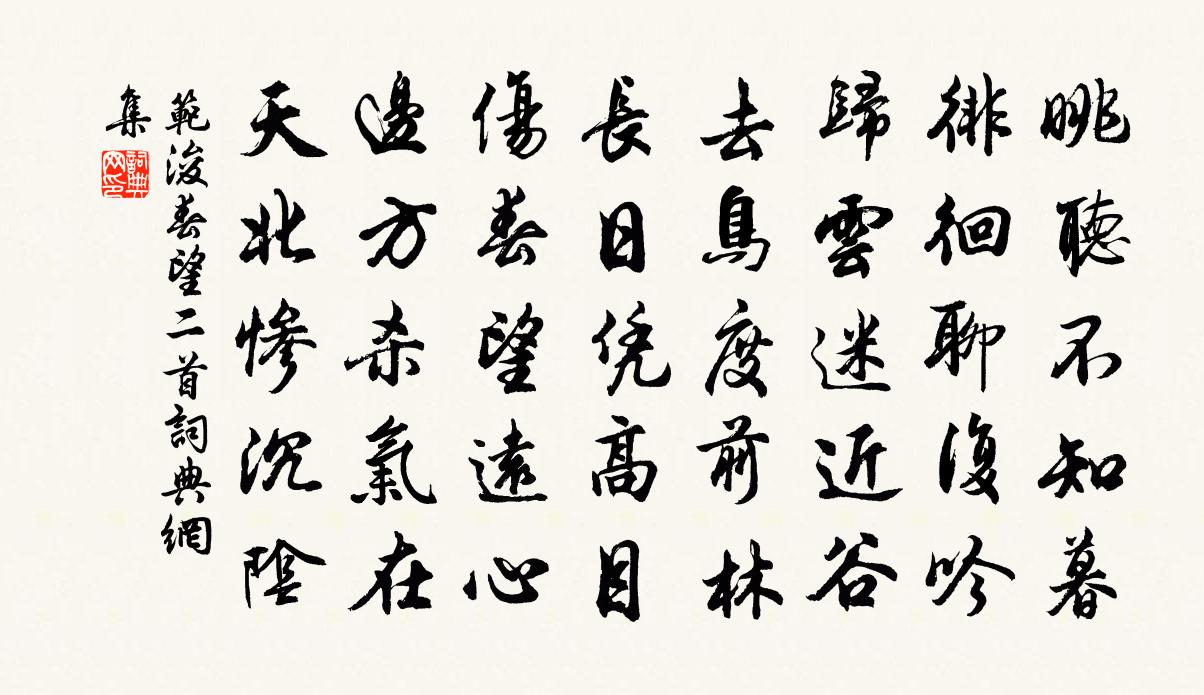 眺聽不知暮
徘徊聊復吟
歸雲迷近谷
去鳥度前林
長日凭高目
傷春望遠心
邊方杀氣在
天北慘沉陰
範浚春望二首詞典網
集
詞典
网印